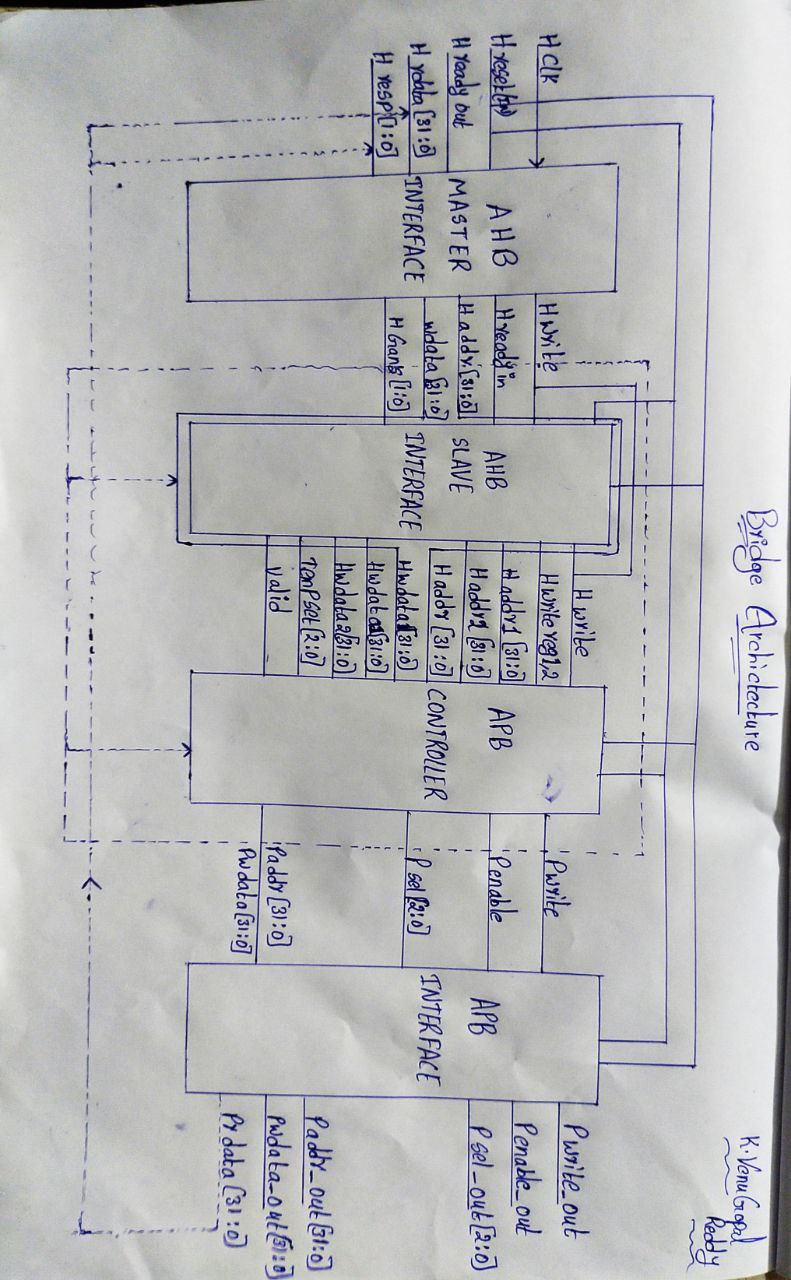 Bridge Archictecture
K. Venu Gopal
Reddy
H Clk
Hreset
H ready out
H rdata [31:0]
H resp [1:0]
AHB
MASTER
INTERFACE
H write
H ready in
H addr [31:0]
wdata [31:0]
H [1:0]
AHB
SLAVE
INTERFACE
H write
Hwrite reg 1,2
H addr1 [31:0]
H addr2 [31:0]
H addr [31:0]
Hwdata [31:0]
Hwdata [31:0]
Hwdata2 [31:0]
[2:0]
valid
APB
CONTROLLER
Pwrite
Penable
P sel [2:0]
Paddr [31:0]
Pwdata [31:0]
APB
INTERFACE
Pwrite_out
Penable_out
P sel_out [2:0]
Paddr_out [31:0]
Pwdata_out [31:0]
Pr data [31:0]